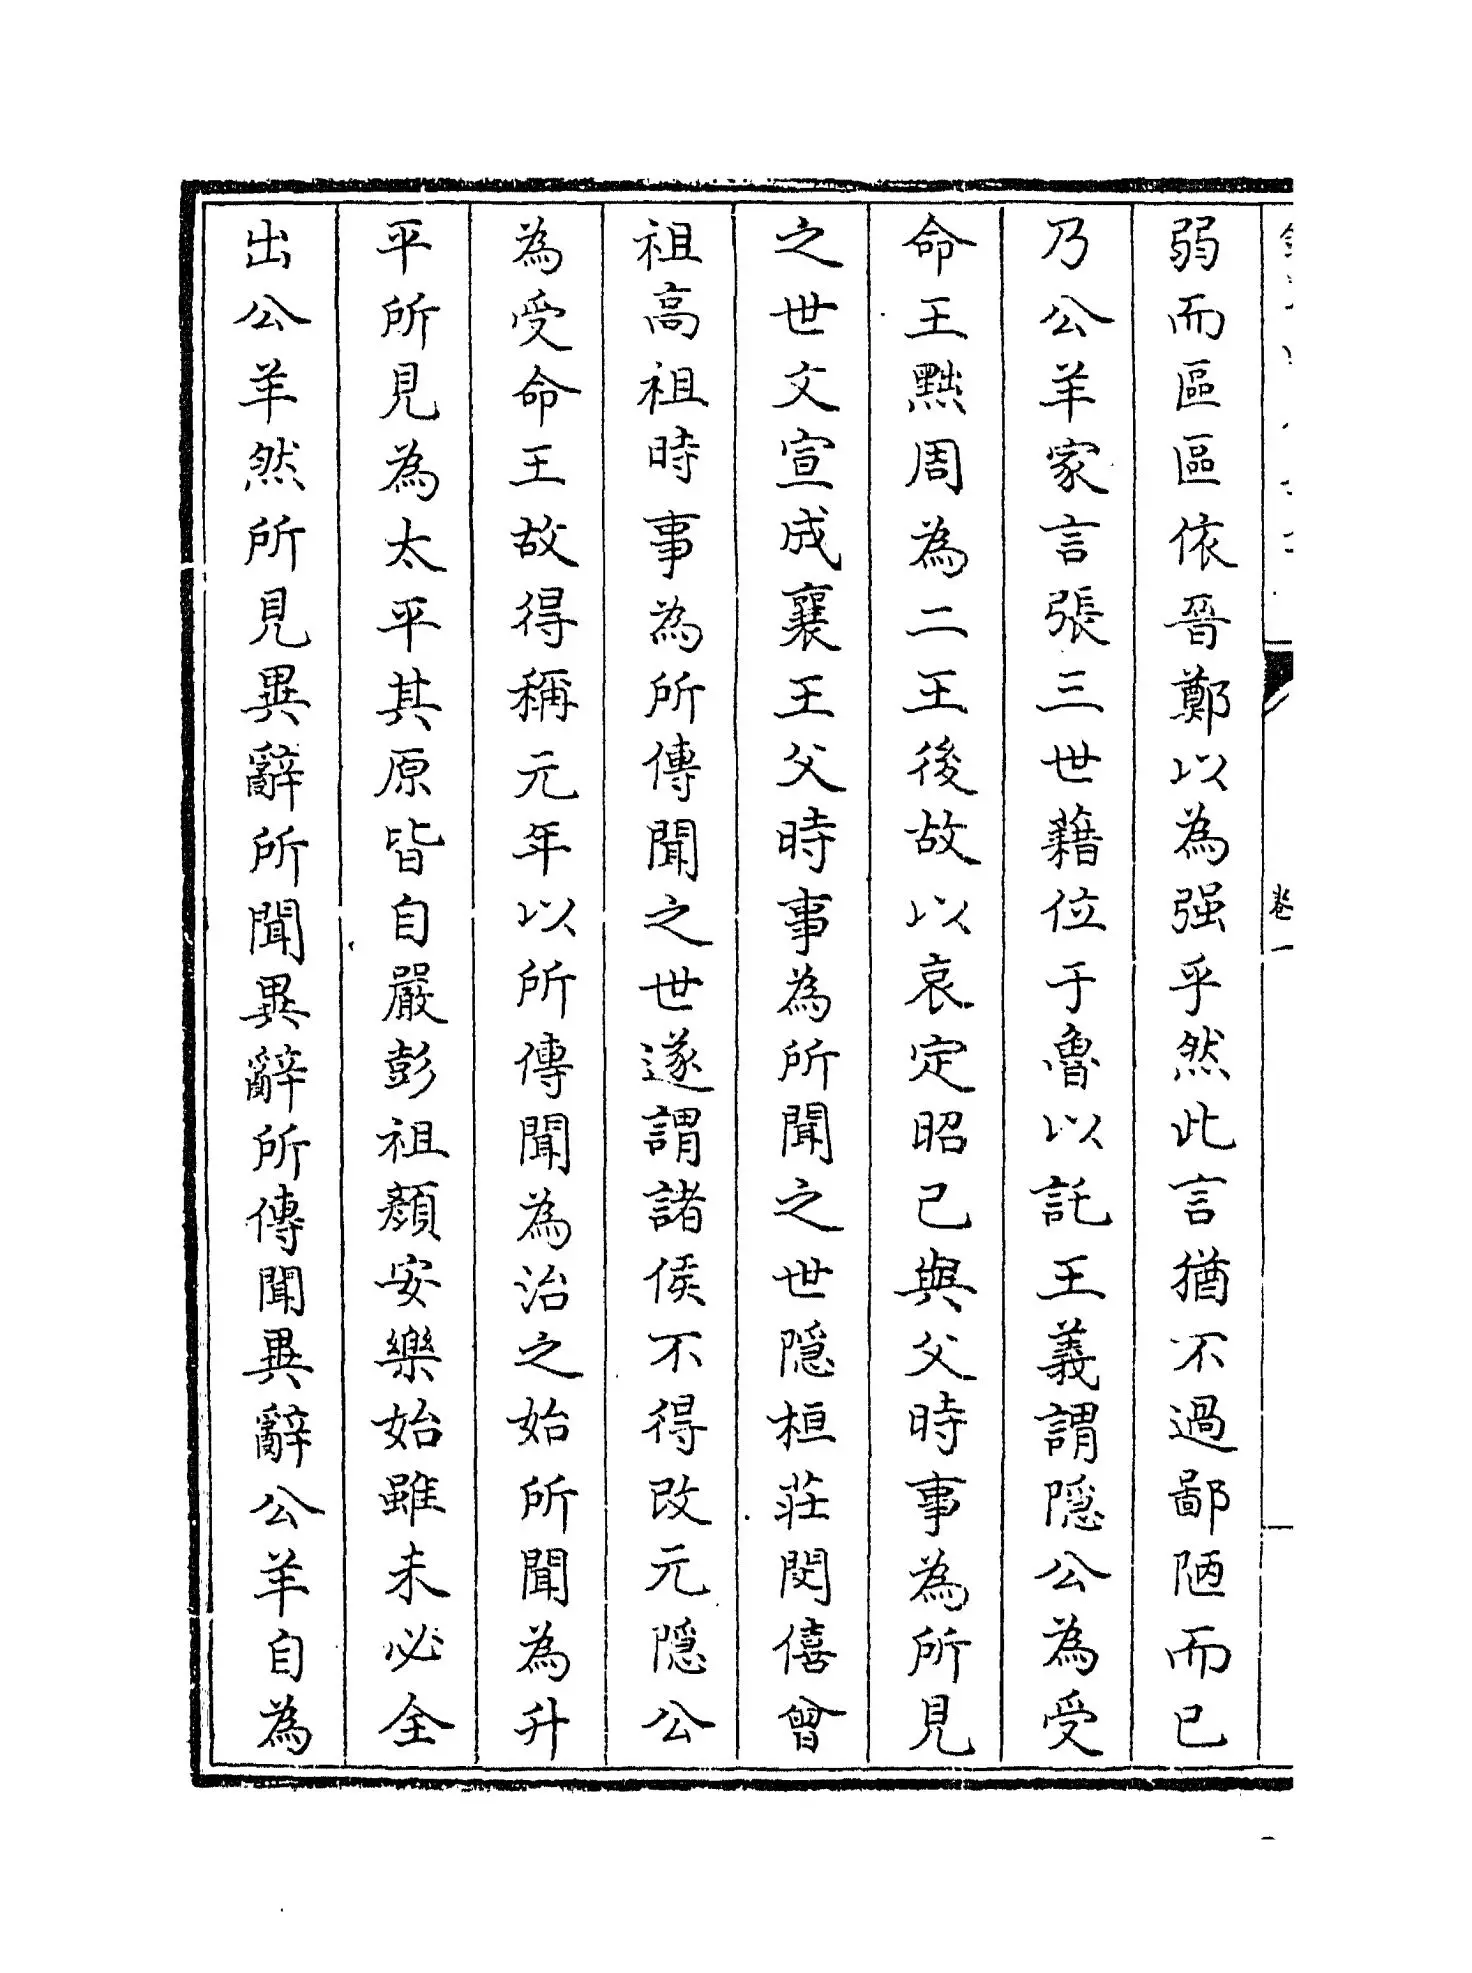 弱而區區依晉鄭以為强乎然此言猶不過鄙陋而已
乃公羊家言張三世藉位于魯以託王義謂隠公為受
命王黜周為二王後故以哀定昭己與父時事為所見
之世文宣成襄王父時事為所聞之世隠桓莊閔僖曾
祖高祖時事為所傳聞之世遂謂諸侯不得改元隠公
為受命王故得稱元年以所傳聞為治之始所聞為升
平所見為太平其原皆自嚴彭祖顏安樂始雖未必全
出公羊然所見異辭所聞異辭所傳聞異辭公羊自為
卷一